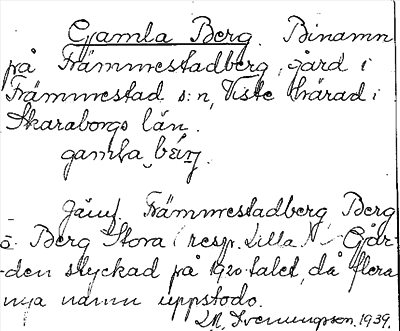 Gamla Berg. Binamn
på Främmestadberg, gård i
Främmestad s:n, Viste härad i
Skaraborgs län.
gamla bærj.
Jämf. Främmestadberg Berg
å Berg Stora (resp. Lilla N.) Går-
den styckad på 1920 talet, då flera
nya namn uppstodo.
Svenningsson. 1939.